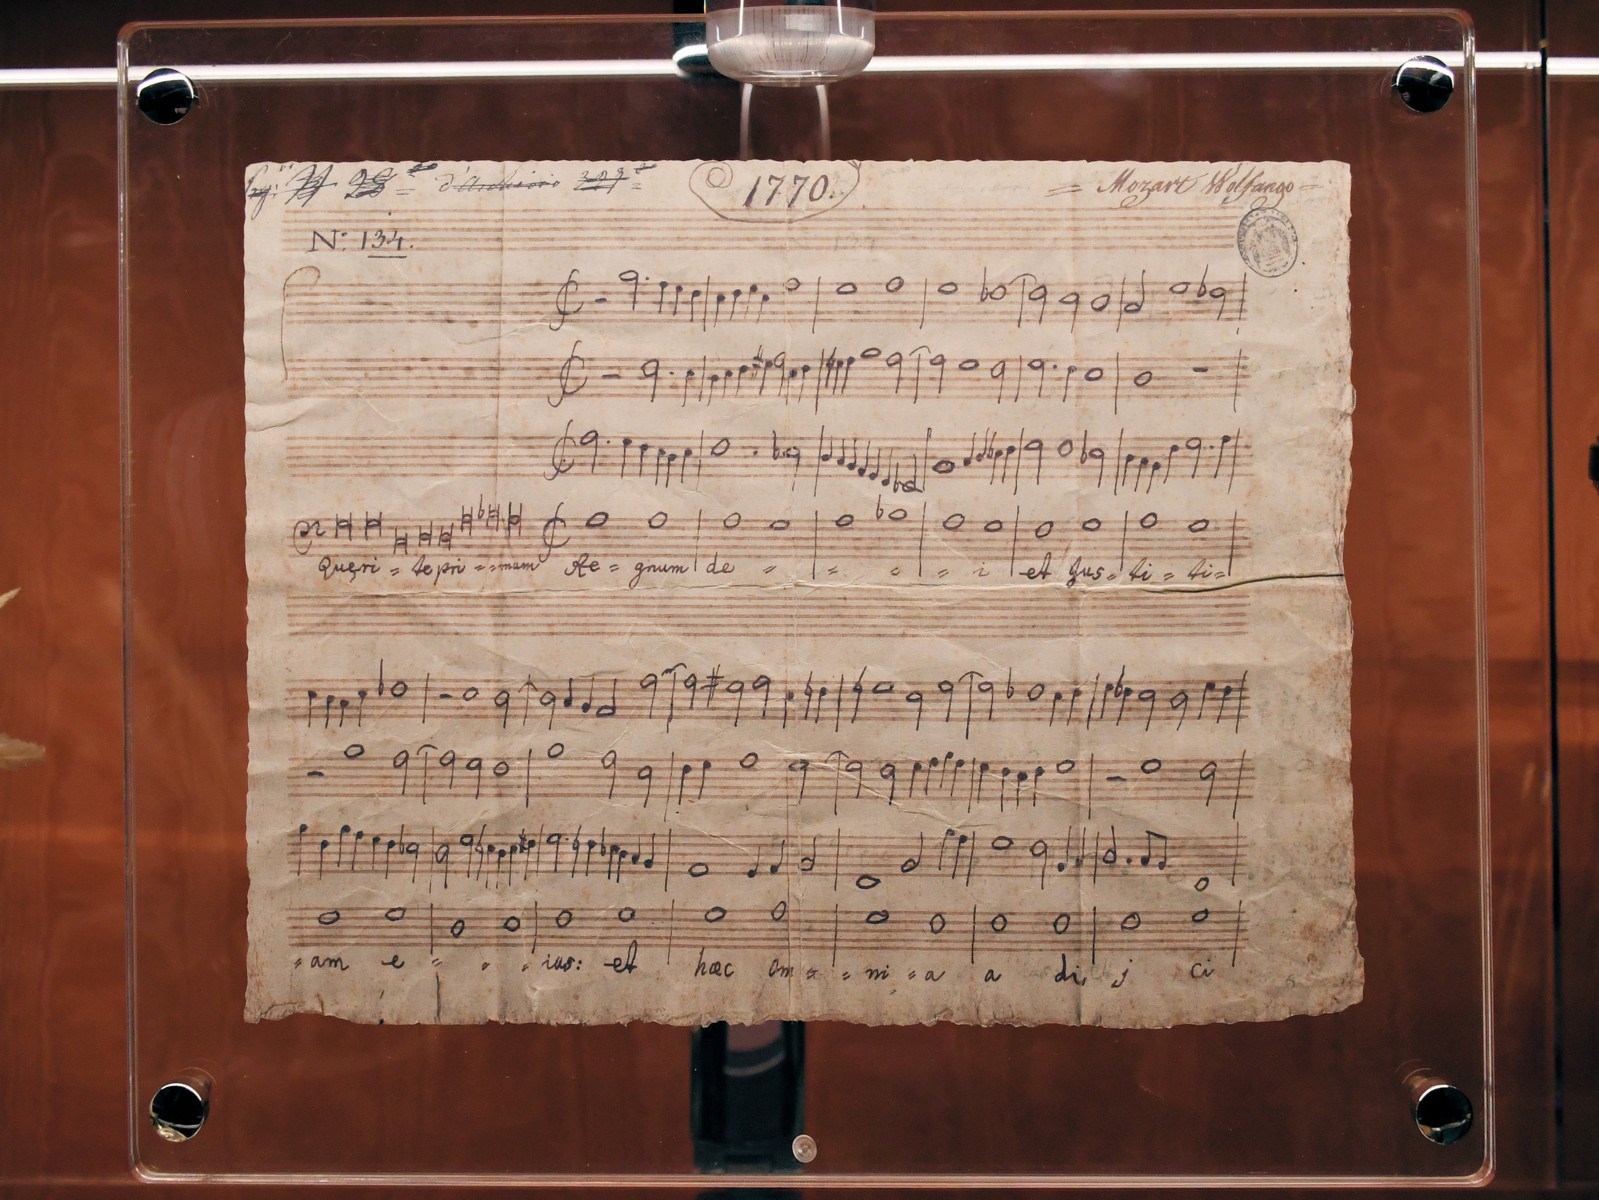 1770.
= Mozart Wolfango =
N: 134.
Quęri = te pri = = mum Re = gnum de = = = = i et Jus = ti = ti =
= am e = = = ius: et hæc om = = ni = a a di, j ci